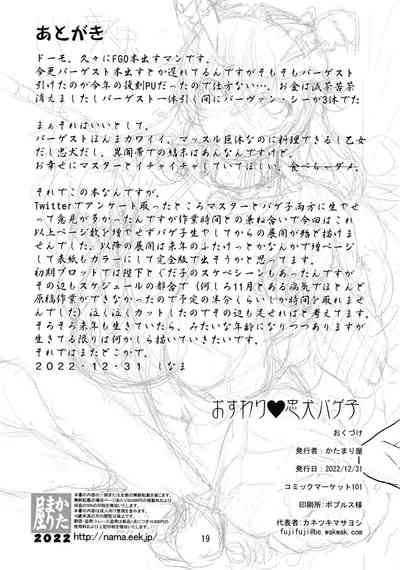 あとがき
ドーモ、久々にFGO本出すマンです。
今更バーゲスト本出すとか遅れてるんですがそもそもバーゲスト
引けたのが今年の復刻PUだったので仕方ない…。お金は滅茶苦茶
消えましたしバーゲスト一体引く間にバーヴァン・シーが3体でた
まぁそれはいいとして。
バーゲストほんまカワイイ、マッスル巨体なのに料理できるし乙女
だし忠犬だし。異聞帯での結末はあんなんですけど。
お幸せにマスターとイチャイチャしていてほしい。食べちゃダメ。
それでこの本なんですが。
Twitterでアンケート取ったところマスターとバゲ子両方に生やせ
って意見が多かったんですが作業時間との兼ね合いで今回はこれ
以上ページ数を増やせずバゲ子生やしてからの展開が殆ど描けま
せんでした。以降の展開は来年のふたけっとかなんかで増ページ
して表紙もカラーにして完全版で出そうかと思ってます。
初期プロットでは陛下とぐだ子のスケベシーンもあったんですが
その辺もスケジュールの都合で(何しろ11月とある病気でほとんど
原稿作業ができなかったので予定の半分くらいしか時間を取れませ
んでした)泣く泣くカットしたのでその辺も足せればと考えてます。
そろそろ来年も生きていたら、みたいな年齢になりつつありますが
生きてる限りは何かしら描いていきたいです。
それではまたどこかで。
2022・12・31 しなま
おすわり♥忠犬バゲ子
おくづけ
発行者:かたまり屋
発行日:2022/12/31
コミックマーケット101
印刷所:ポプルス様
代表者:カネツキマサヨシ
fujifuji@be.wakwak.com
かたまり屋
2022
http://nama.eek.jp/
19